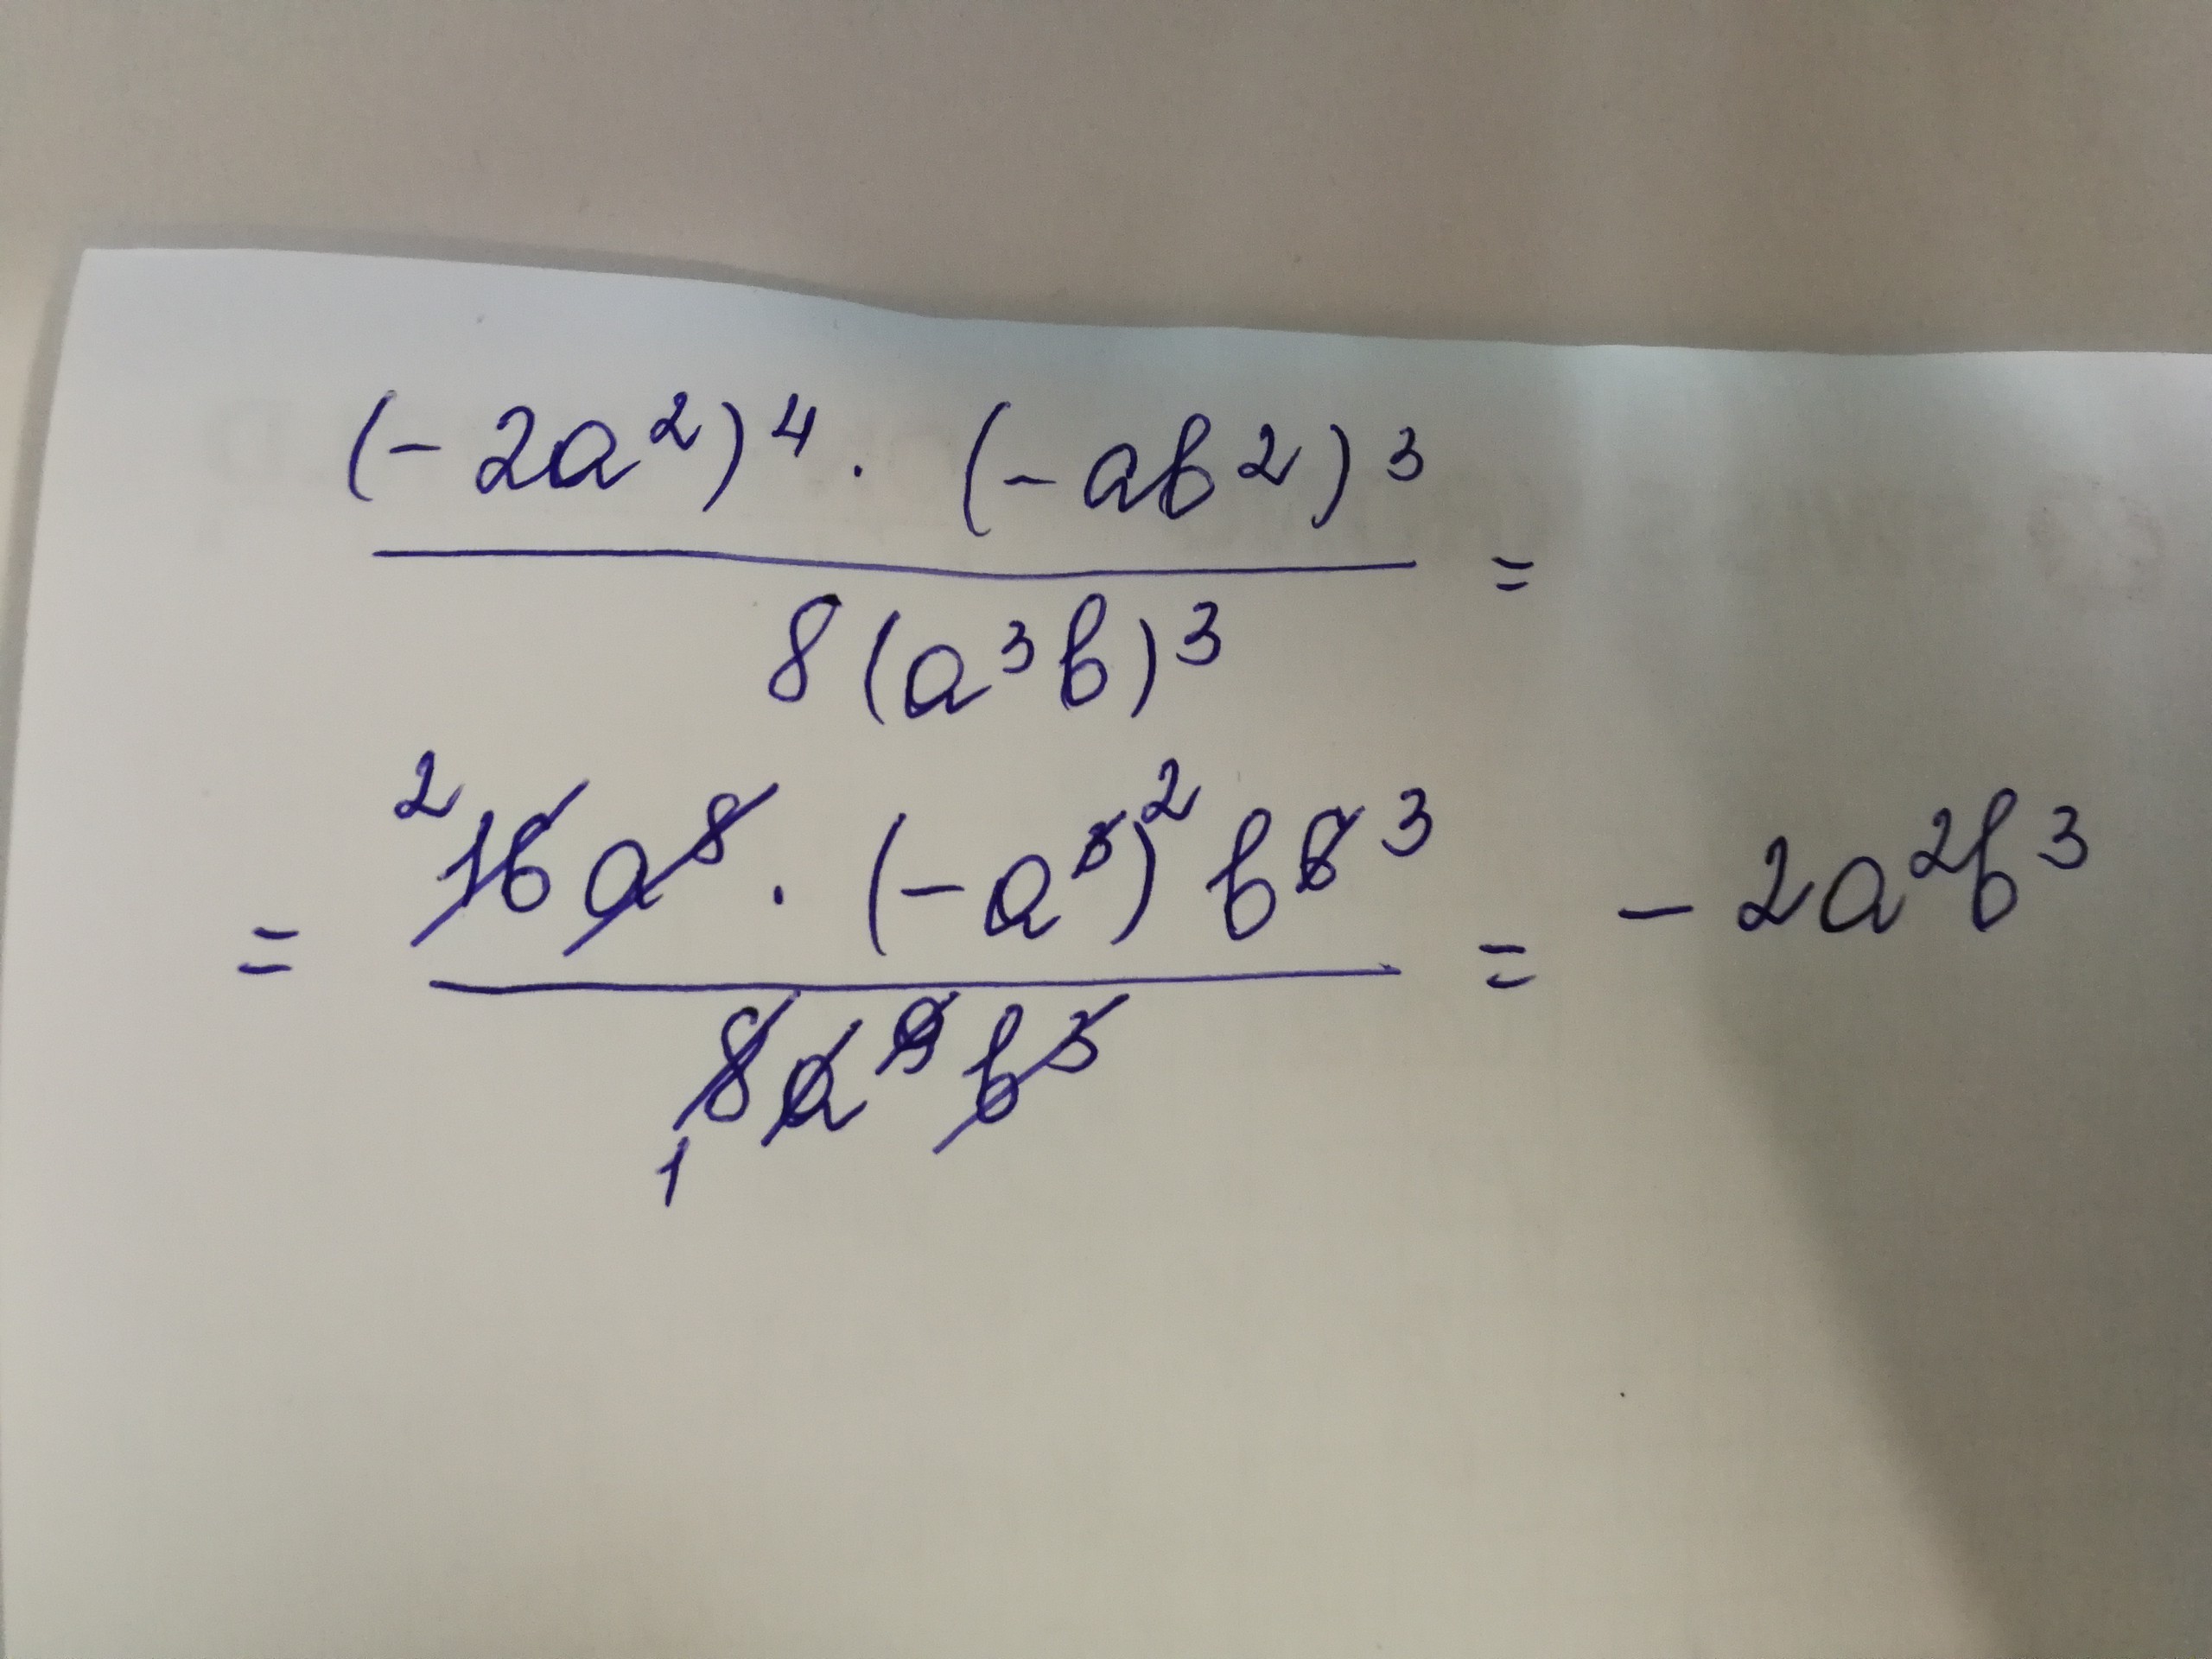 (-2a²)⁴ · (-ab²)³
=
8(a³b)³
2 16a⁸ · (-a³)² b⁶ ³
= = -2a²b³
8a⁹b³
1